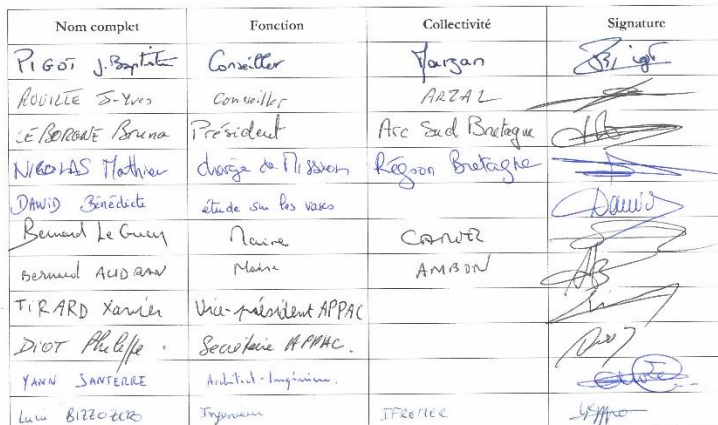 Nom complet Fonction Collectivité Signature
PIGOT J. Baptiste Conseiller Marzan
ROUILLE J-Yves Conseiller ARZAL
LE BORGNE Bruno Président Arc Sud Bretagne
NICOLAS Mathieu chargé de Mission Région Bretagne
DAWID Bénédicte étude sur les vases Dawid
Bernard Le Guen Maire CAMOEL
Bernard AUDRAN Maire AMBON
TIRARD Xavier Vice-président APPAC
DIOT Philippe. Secrétaire APPAC.
YANN SANTERRE Architect-Ingénieur.
Lucie BIZZOZERO Ingenieur IFREMER